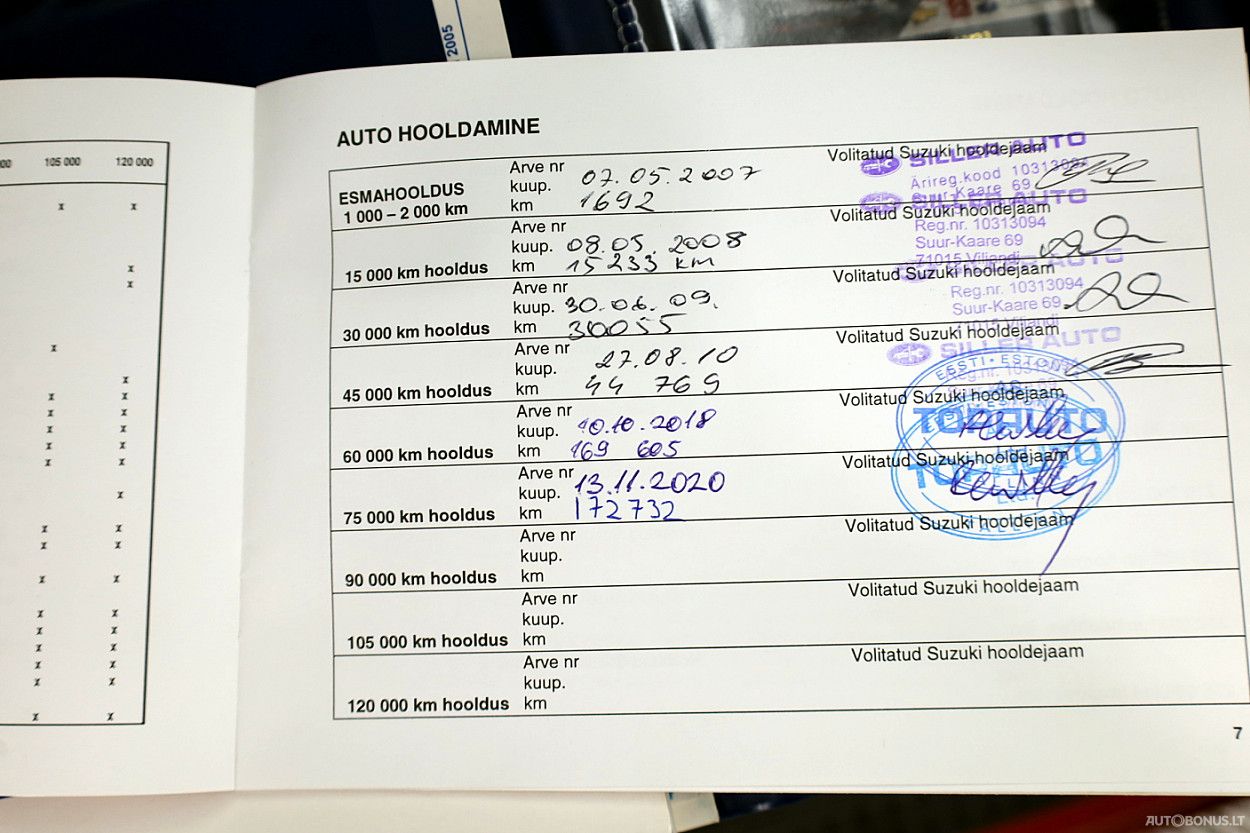 2005
00 105 000 120 000
AUTO HOOLDAMINE
ESMAHOOLDUS
1 000 – 2 000 km
Arve nr
kuup. 07.05.2007
km 1692
Volitatud Suzuki hooldejaam
SILLER AUTO
Ärireg.kood 10313094
Suur-Kaare 69
15 000 km hooldus
Arve nr
kuup. 08.05.2008
km 15 233 km
Volitatud Suzuki hooldejaam
SILLER AUTO
Reg.nr. 10313094
Suur-Kaare 69
71015 Viljandi
30 000 km hooldus
Arve nr
kuup. 30.06.09.
km 30055
Volitatud Suzuki hooldejaam
SILLER AUTO
Reg.nr. 10313094
Suur-Kaare 69
71015 Viljandi
45 000 km hooldus
Arve nr
kuup. 27.08.10
km 44 769
Volitatud Suzuki hooldejaam
SILLER AUTO
Reg.nr. 10313094
60 000 km hooldus
Arve nr
kuup. 10.10.2018
km 169 605
Volitatud Suzuki hooldejaam
EESTI - ESTONIA
TOPAUTO
75 000 km hooldus
Arve nr
kuup. 13.11.2020
km 172732
Volitatud Suzuki hooldejaam
TOPAUTO
TALLINN
90 000 km hooldus
Arve nr
kuup.
km
Volitatud Suzuki hooldejaam
105 000 km hooldus
Arve nr
kuup.
km
Volitatud Suzuki hooldejaam
120 000 km hooldus
Arve nr
kuup.
km
Volitatud Suzuki hooldejaam
7
AUTOBONUS.LT